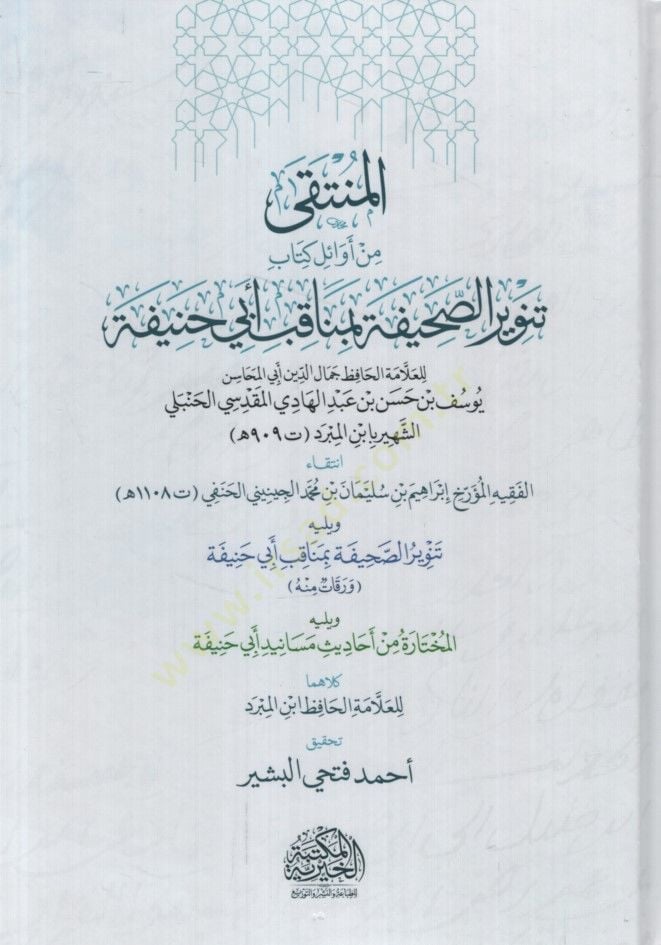 المُنْتَقَى
مِنْ أَوَائِلِ كِتَابِ
تَنْوِيرُ الصَّحِيفَةِ بِمَنَاقِبِ أَبِي حَنِيفَة
لِلعَلَّامَةِ الحَافِظِ جَمَالِ الدِّينِ أَبِي المَحَاسِنِ
يُوسُفَ بْنِ حَسَنِ بْنِ عَبْدِ الهَادِي المَقْدِسِي الحَنْبَلِي
الشَّهِيرِ بِابْنِ المِبْرَد (ت ٩٠٩ هـ)
انتقاء
الفَقِيهِ المُؤَرِّخِ إِبْرَاهِيمَ بْنِ سُلَيْمَانَ بْنِ مُحَمَّدٍ الجِينِينِي الحَنَفِي (ت ١١٠٨ هـ)
ويليه
تَنْوِيرُ الصَّحِيفَةِ بِمَنَاقِبِ أَبِي حَنِيفَة
(وَرَقَاتٌ مِنْهُ)
ويليه
المُخْتَارَةُ مِنْ أَحَادِيثِ مَسَانِيدِ أَبِي حَنِيفَة
كلاهما
لِلعَلَّامَةِ الحَافِظِ ابْنِ المِبْرَد
تحقيق
أحمد فتحي البشير
المكتبة
الخيرية
للطباعة والنشر والتوزيع